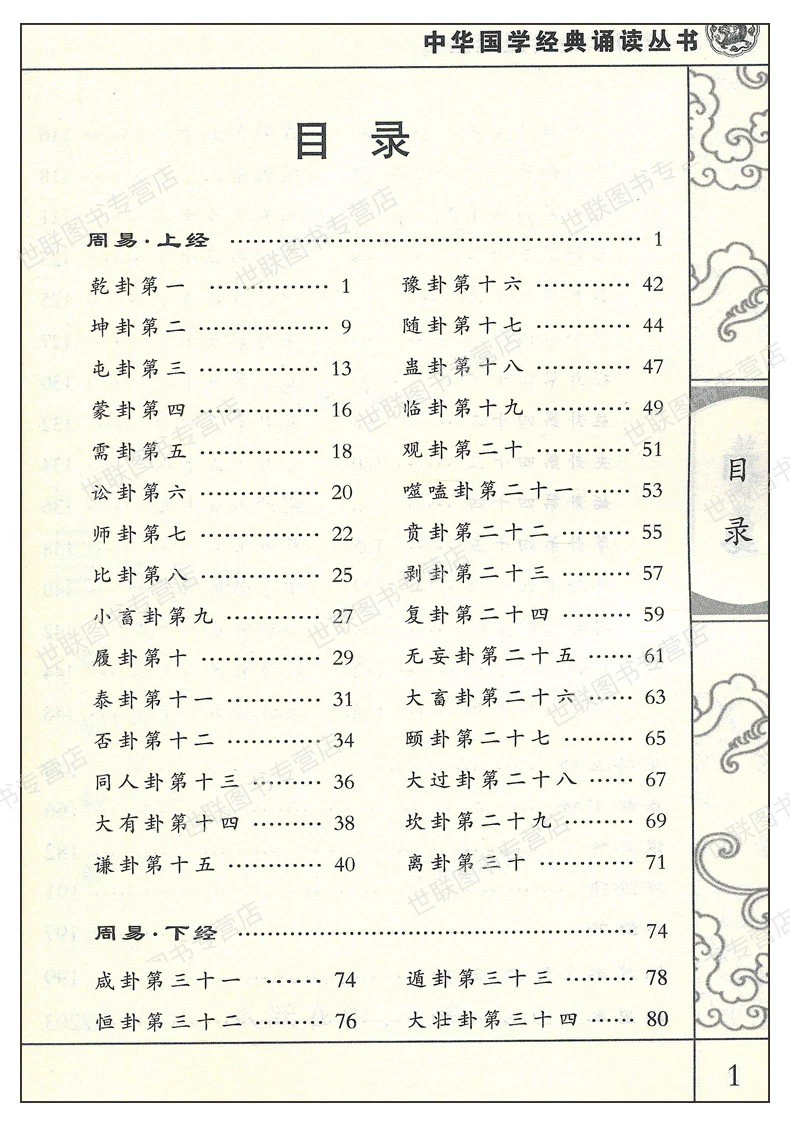 中华国学经典诵读丛书
目 录
周易·上经 …………………………………… 1
乾卦第一 …………… 1
坤卦第二 …………… 9
屯卦第三 …………… 13
蒙卦第四 …………… 16
需卦第五 …………… 18
讼卦第六 …………… 20
师卦第七 …………… 22
比卦第八 …………… 25
小畜卦第九 ………… 27
履卦第十 …………… 29
泰卦第十一 ………… 31
否卦第十二 ………… 34
同人卦第十三 ……… 36
大有卦第十四 ……… 38
谦卦第十五 ………… 40
豫卦第十六 ………… 42
随卦第十七 ………… 44
蛊卦第十八 ………… 47
临卦第十九 ………… 49
观卦第二十 ………… 51
噬嗑卦第二十一 …… 53
贲卦第二十二 ……… 55
剥卦第二十三 ……… 57
复卦第二十四 ……… 59
无妄卦第二十五 …… 61
大畜卦第二十六 …… 63
颐卦第二十七 ……… 65
大过卦第二十八 …… 67
坎卦第二十九 ……… 69
离卦第三十 ………… 71
周易·下经 …………………………………… 74
咸卦第三十一 …… 74
恒卦第三十二 ……… 76
遁卦第三十三 ……… 78
大壮卦第三十四 …… 80
目录
1
世联图书专营店